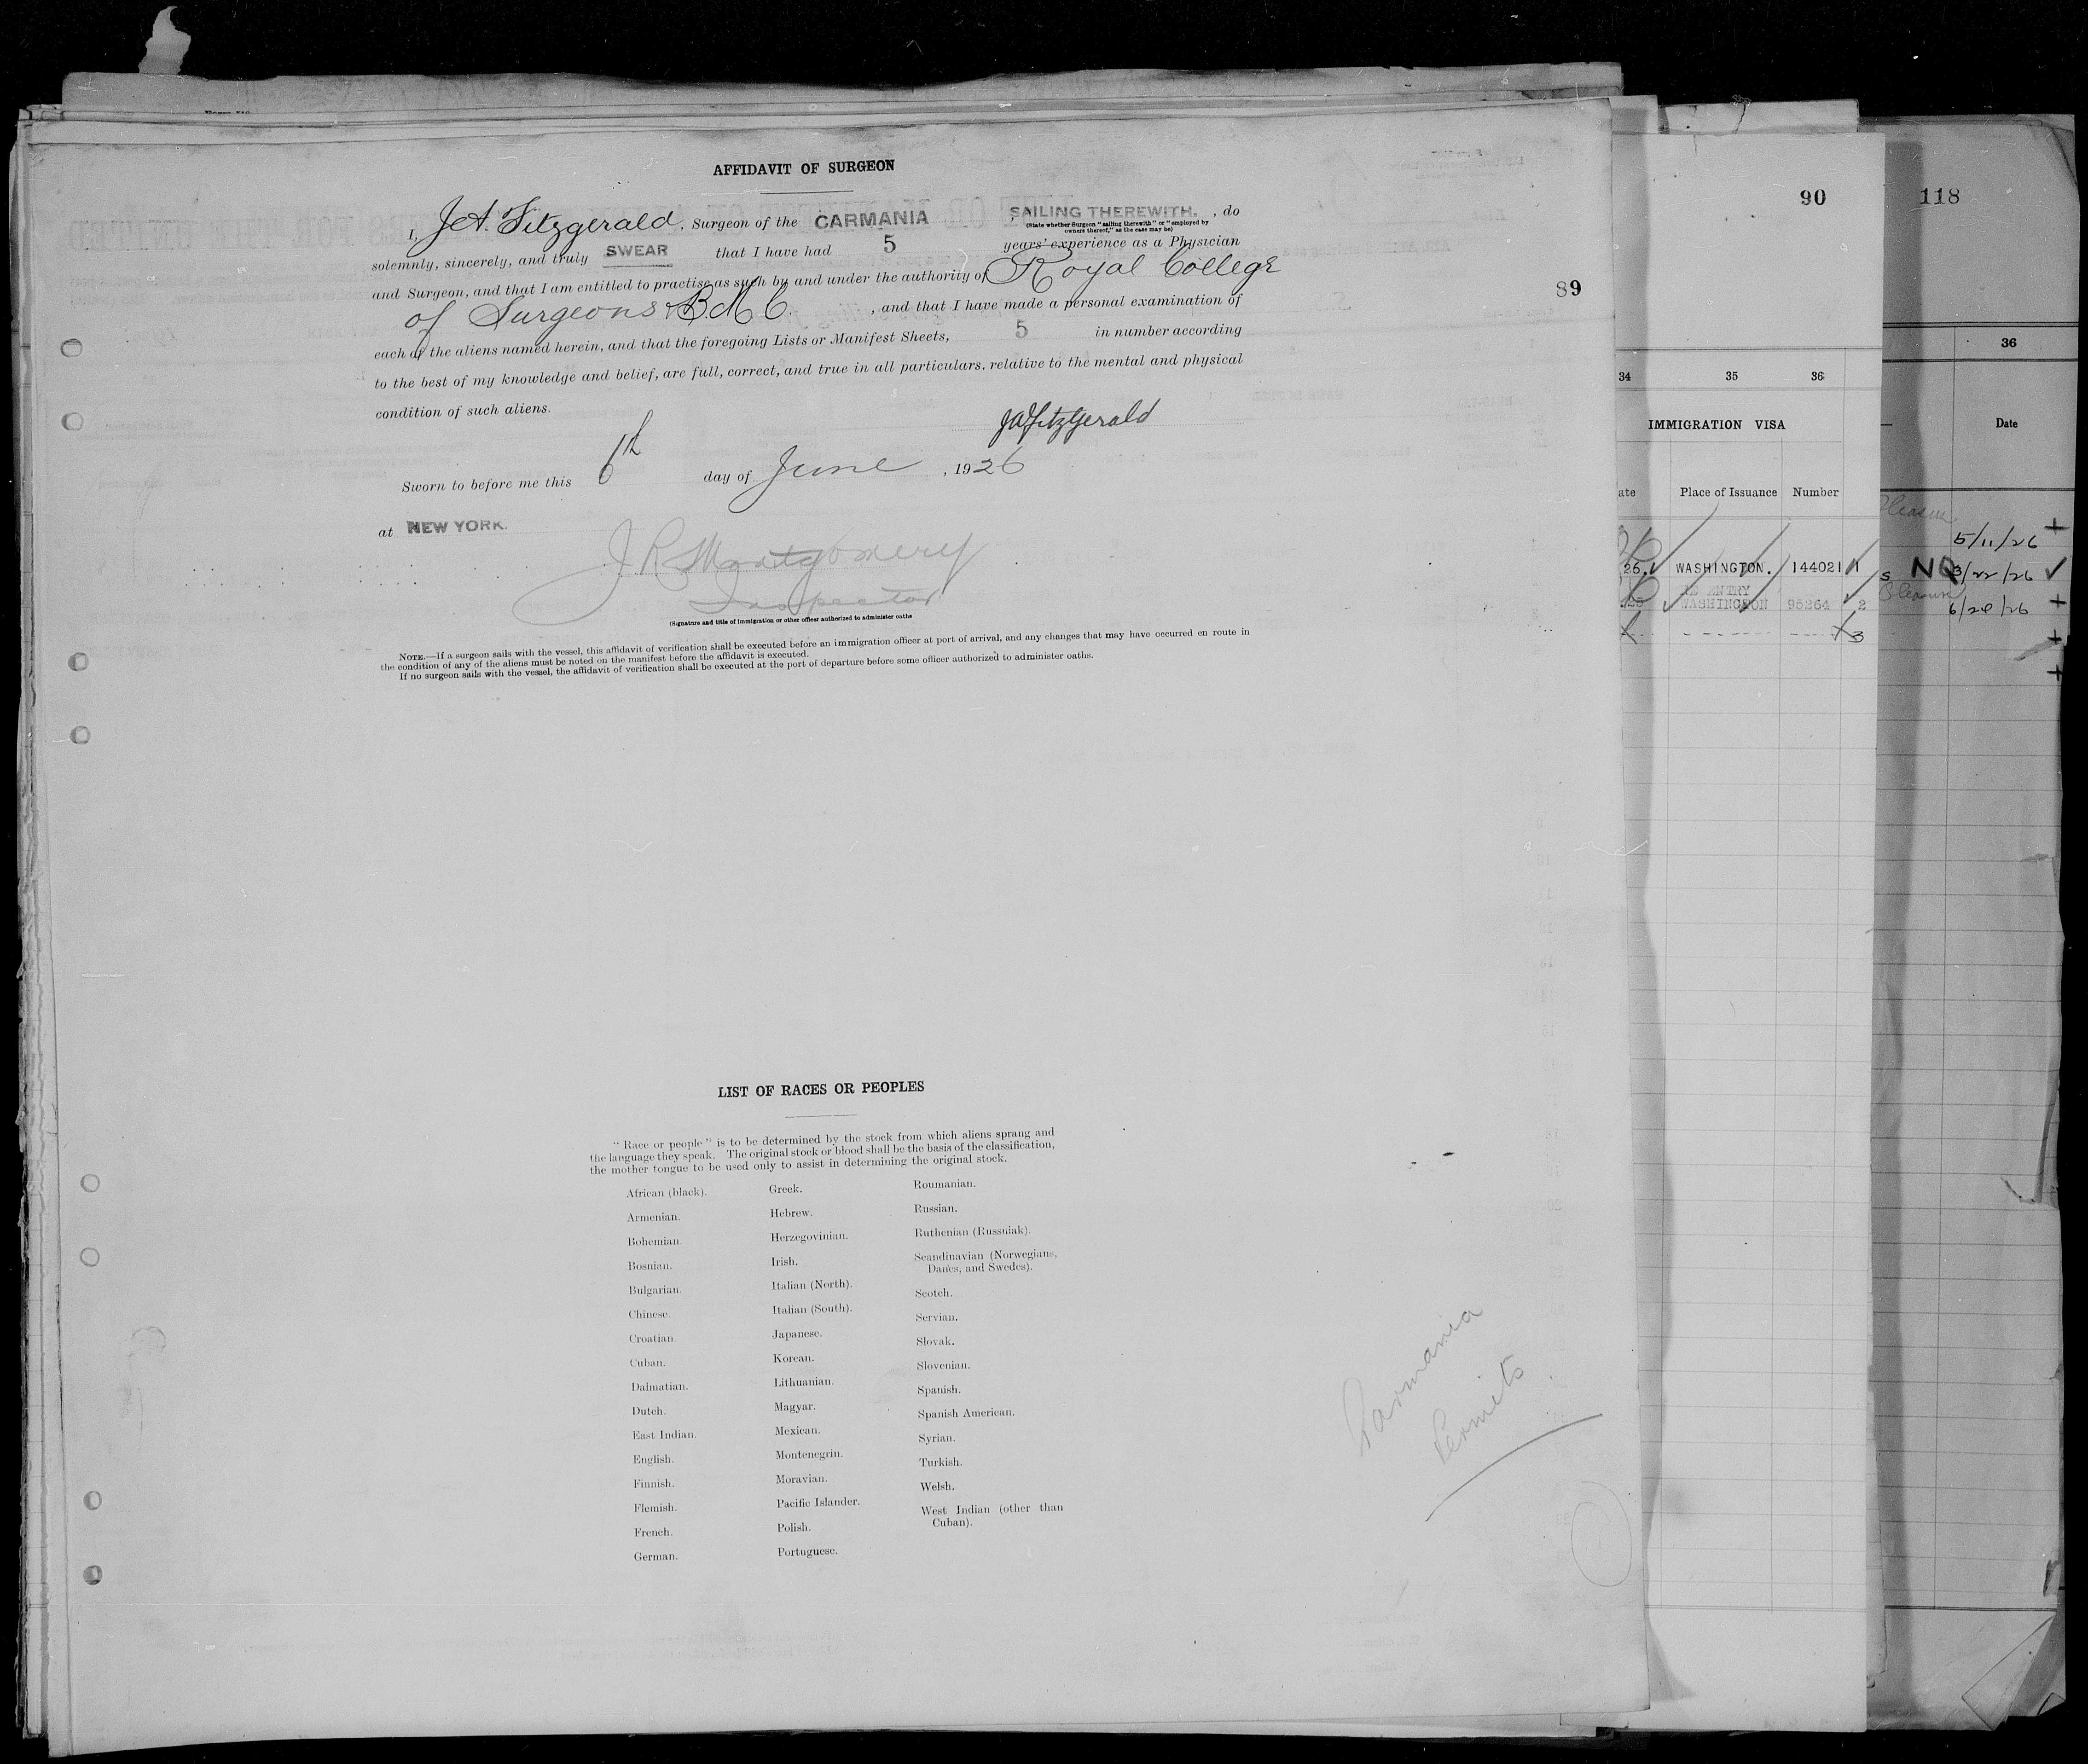 AFFIDAVIT OF SURGEON
I, J.A. Fitzgerald, Surgeon of the CARMANIA SAILING THEREWITH. , do
(State whether Surgeon "sailing therewith" or "employed by
owners thereof," as the case may be)
solemnly, sincerely, and truly SWEAR that I have had 5 years' experience as a Physician
and Surgeon, and that I am entitled to practise as such by and under the authority of Royal College
of Surgeons & B.M.C. , and that I have made a personal examination of
each of the aliens named herein, and that the foregoing Lists or Manifest Sheets, 5 in number according
to the best of my knowledge and belief, are full, correct, and true in all particulars. relative to the mental and physical
condition of such aliens.
JAFitzGerald
Sworn to before me this 6th day of June , 1926
at NEW YORK.
J R Montgomery
Inspector
(Signature and title of immigration or other officer authorized to administer oaths
NOTE.—If a surgeon sails with the vessel, this affidavit of verification shall be executed before an immigration officer at port of arrival, and any changes that may have occurred en route in
the condition of any of the aliens must be noted on the manifest before the affidavit is executed.
If no surgeon sails with the vessel, the affidavit of verification shall be executed at the port of departure before some officer authorized to administer oaths.
89
LIST OF RACES OR PEOPLES
"Race or people" is to be determined by the stock from which aliens sprang and
the language they speak. The original stock or blood shall be the basis of the classification,
the mother tongue to be used only to assist in determining the original stock.
African (black).
Armenian.
Bohemian.
Bosnian.
Bulgarian.
Chinese.
Croatian.
Cuban.
Dalmatian.
Dutch.
East Indian.
English.
Finnish.
Flemish.
French.
German.
Greek.
Hebrew.
Herzegovinian.
Irish.
Italian (North).
Italian (South).
Japanese.
Korean.
Lithuanian.
Magyar.
Mexican.
Montenegrin.
Moravian.
Pacific Islander.
Polish.
Portuguese.
Roumanian.
Russian.
Ruthenian (Russniak).
Scandinavian (Norwegians,
Danes, and Swedes).
Scotch.
Servian.
Slovak.
Slovenian.
Spanish.
Spanish American.
Syrian.
Turkish.
Welsh.
West Indian (other than
Cuban).
Carmania
Permits
90
34 35 36
IMMIGRATION VISA
ate Place of Issuance Number
26. WASHINGTON. 144021 1
RE ENTRY
WASHINGTON 95264 2
3
118
36
Date
5/11/26
s NQ 3/22/26
6/28/26